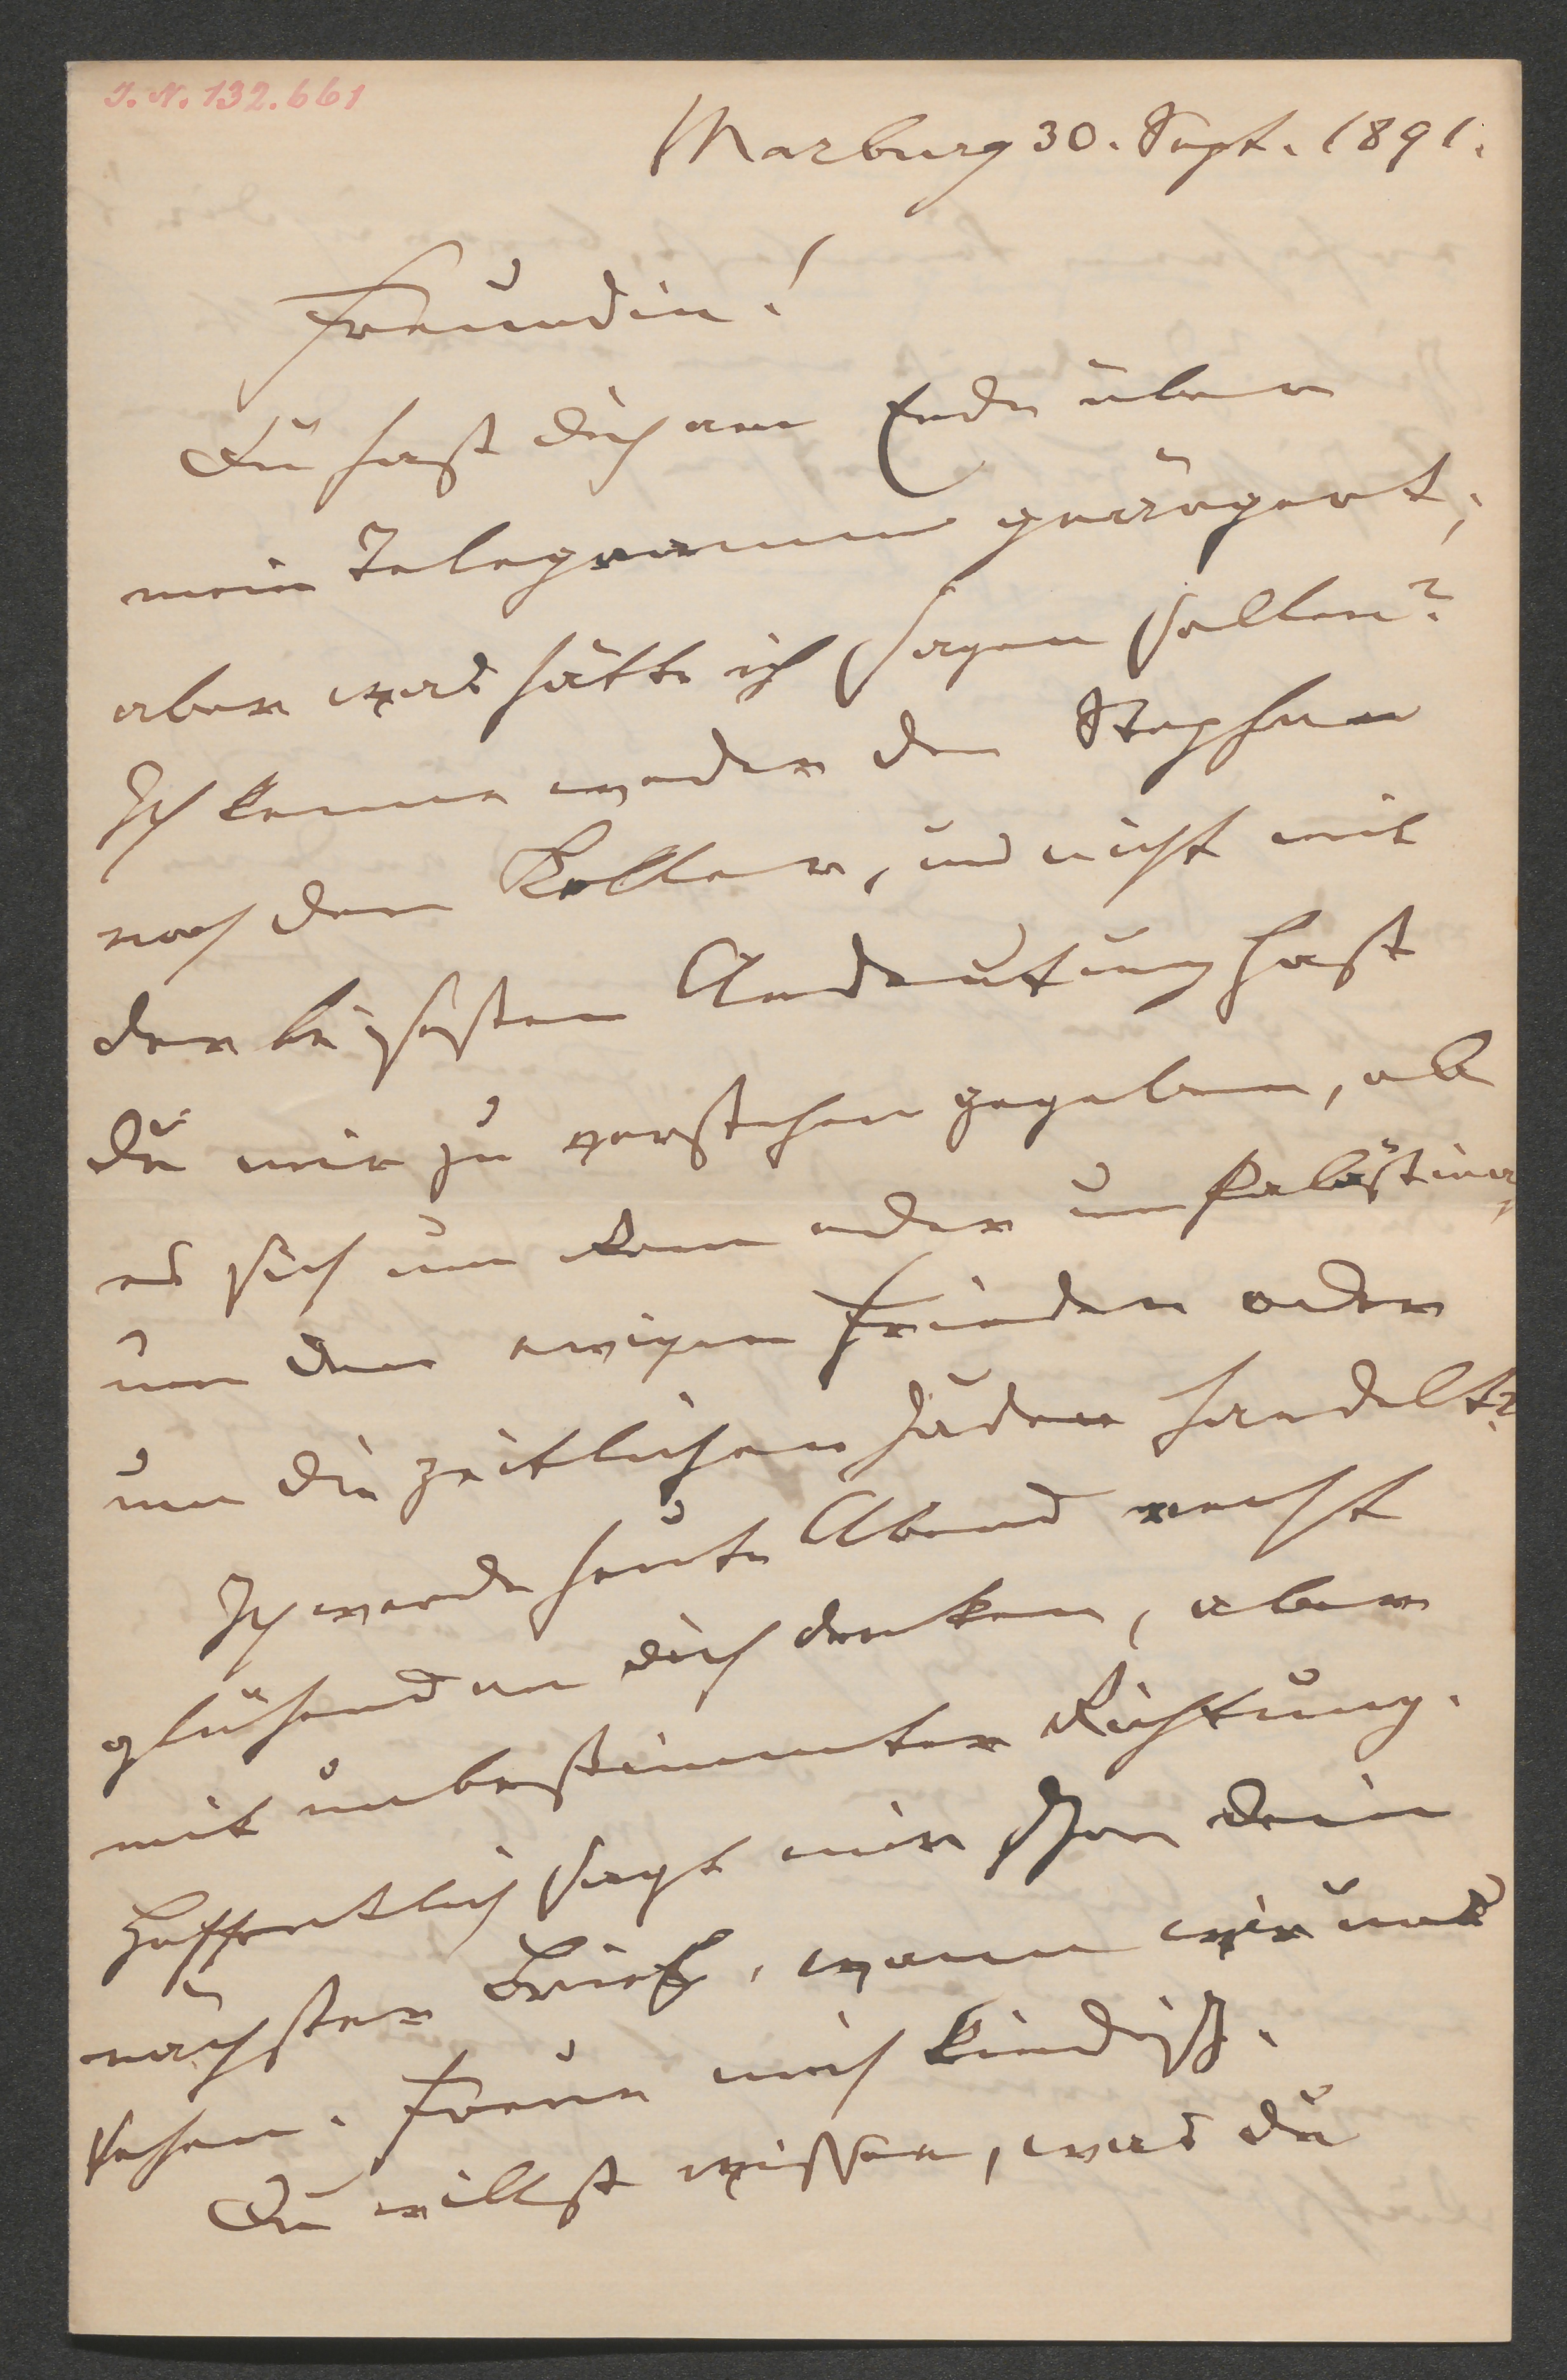 I. N. 132.661
Marburg 30. Sept. 1891.
Freundin!
Du hast dich am Ende über
mein Telegramm geärgert;
aber was hätte ich sagen sollen?
Ich kenne weder den Stephan
noch den Keller, und nicht mit
der leisesten Andeutung hast
du mir zu verstehen gegeben, ob
es sich um Rom oder um Palästina,
um den ewigen Frieden oder
um die zeitlichen Juden handelt?
Ich werde heute Abend recht
glühend an dich denken, aber
mit unbestimmter Richtung.
Hoffentlich sagt mir schon dein
nächster Brief, wann wir uns
sehen. Freue mich kindisch.
Du willst wissen, was du